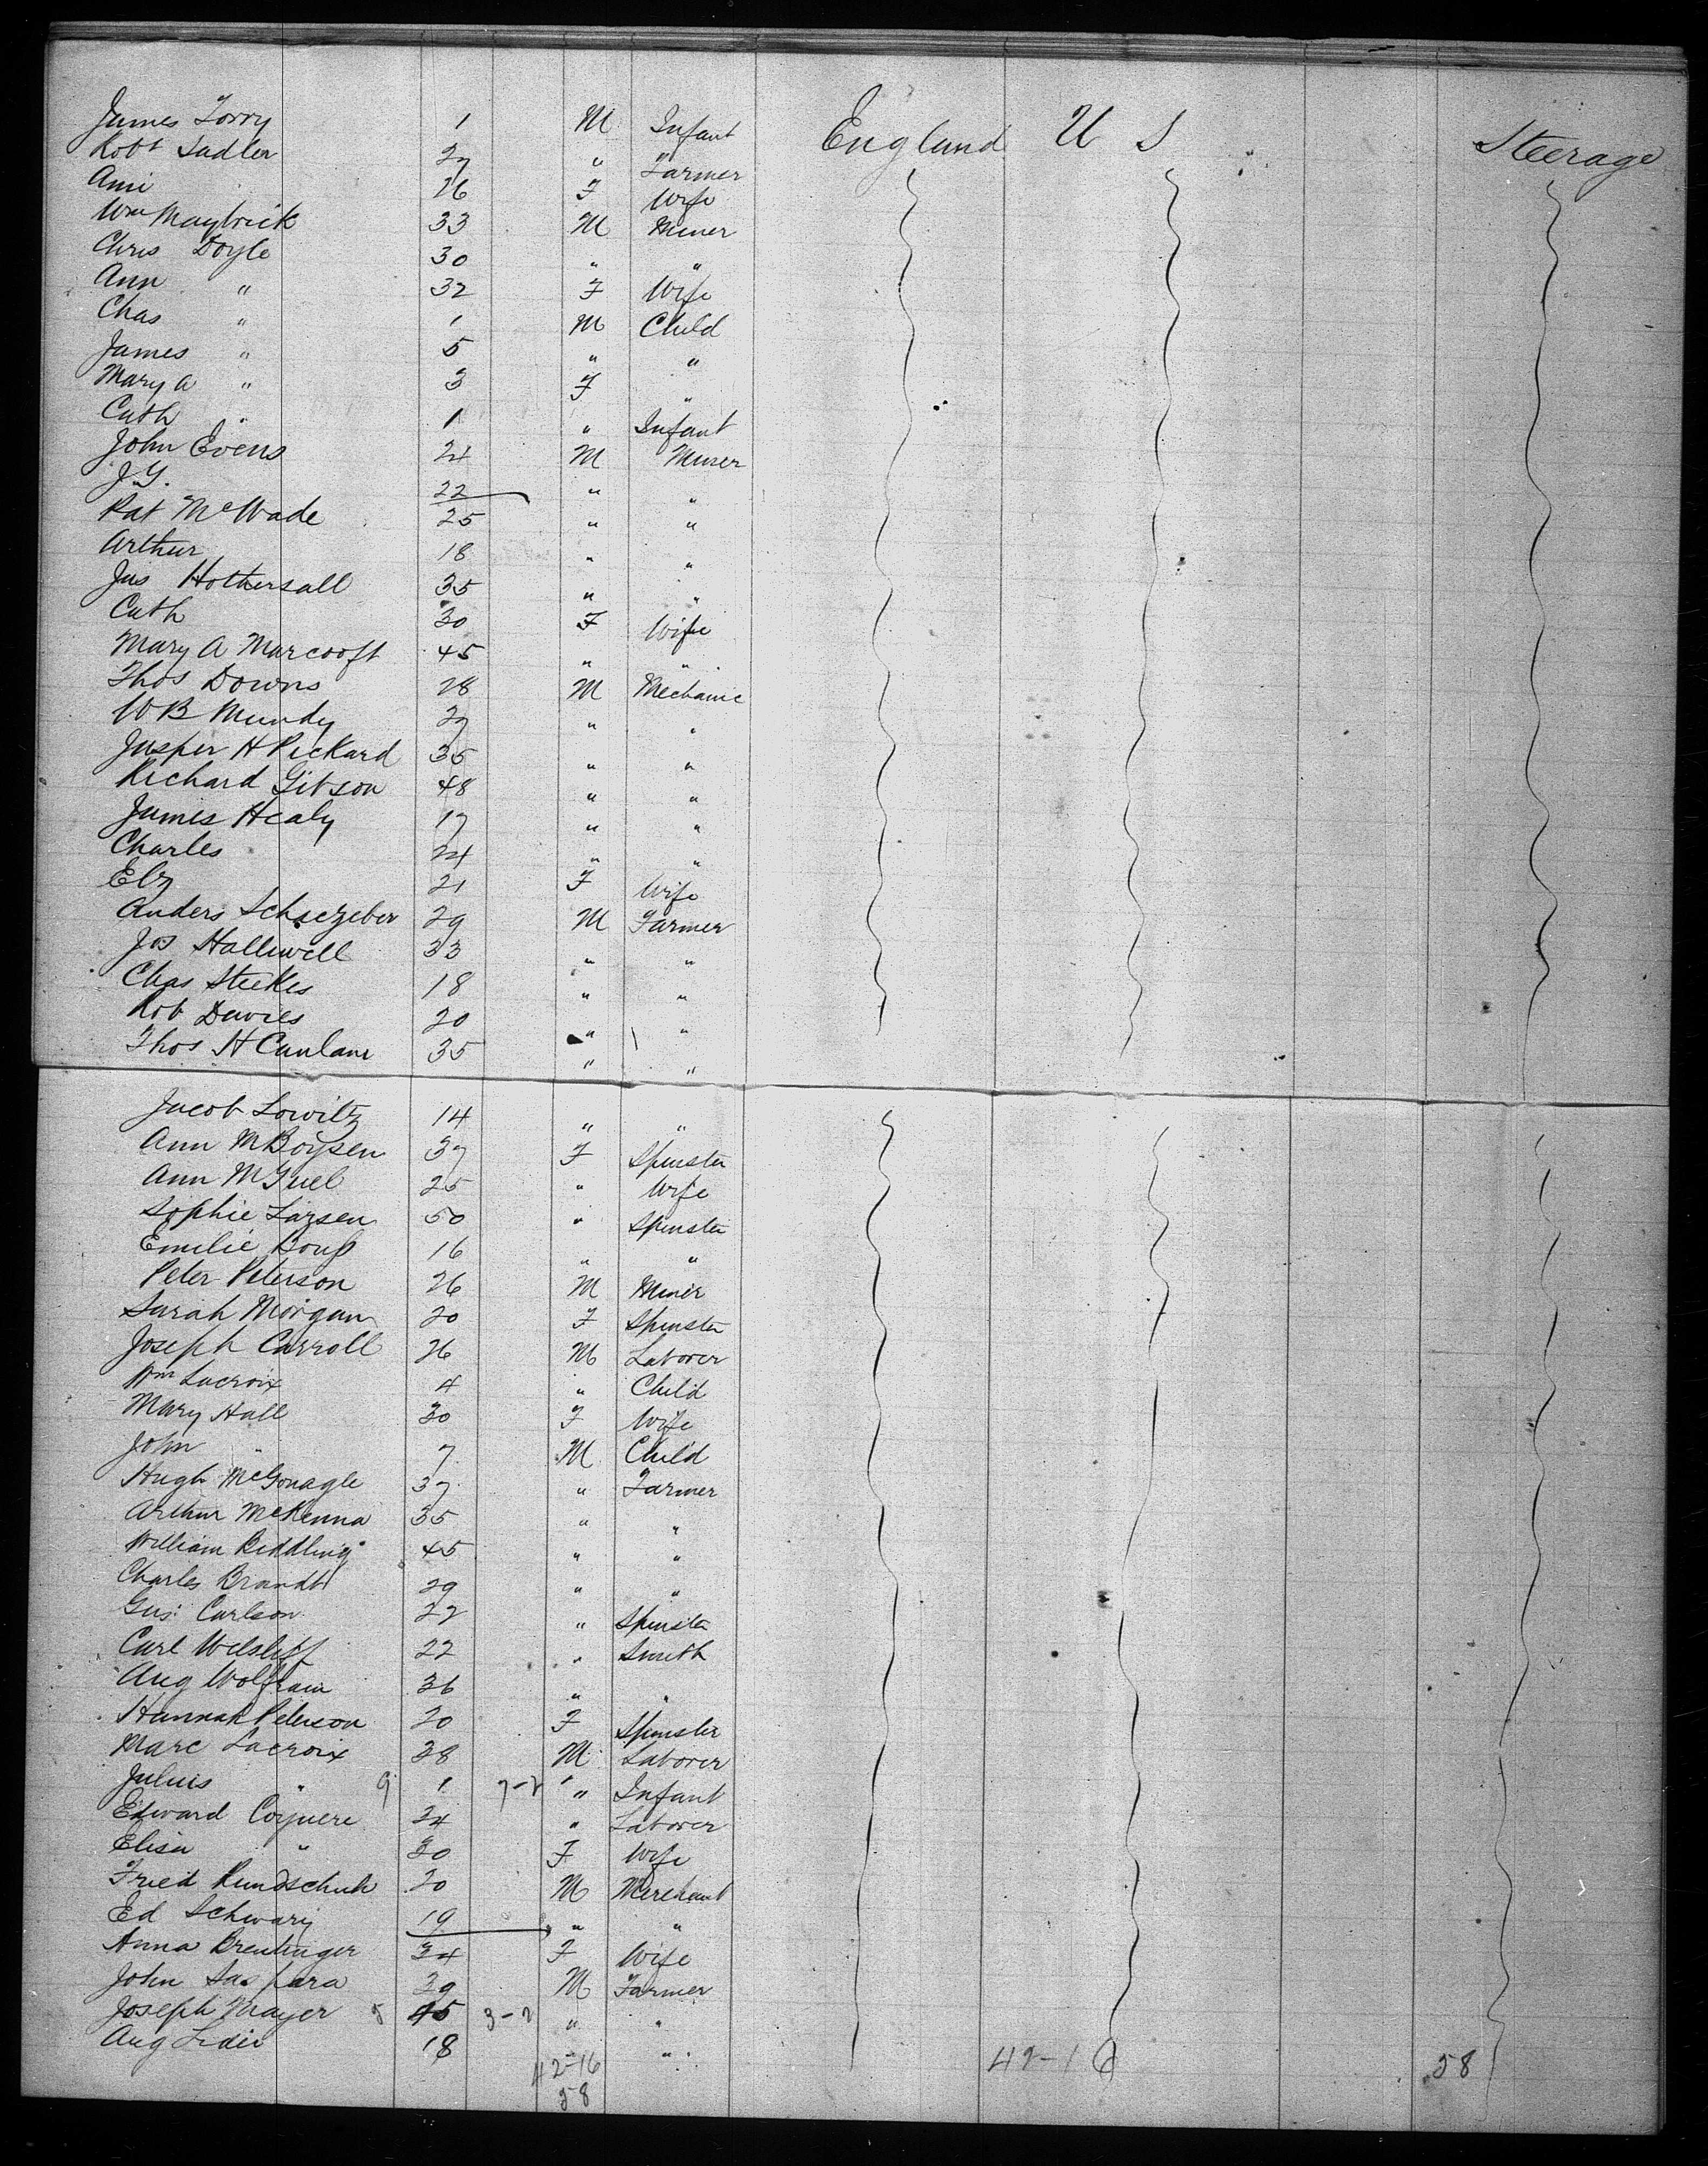 James Torry 1 M Infant England U S Steerage
Robt Sadler 27 " Farmer
Ami 26 F Wife
Wm Maybrick 33 M Miner
Chris Doyle 30 " "
Ann " 32 F Wife
Chas " 1 M Child
James " 5 " "
Mary A " 3 F "
Cath " 1 " Infant
John Evens 24 M Miner
J.G. 22 " "
Pat McWade 25 " "
Arthur 18 " "
Jas Hothersall 35 " "
Cath 30 F Wife
Mary A Marcooft 45 " "
Thos Downs 28 M Mechanic
W B Mundy 27 " "
Jasper H Pickard 35 " "
Richard Gibson 48 " "
James Healy 17 " "
Charles 24 " "
Elz 21 F Wife
Anders 29 M Farmer
Jos Halliwell 33 " "
Chas Steekes 18 " "
Rob Davies 20 " "
Thos H Canlan 35 " "
Jacob Lowitz 14 " "
Ann M Boysen 37 F Spinster
Ann M Juel 25 " Wife
Sophie Larsen 50 " Spinster
Emilie 16 " "
Peter Peterson 26 M Miner
Sarah Morgan 20 F Spinster
Joseph Carroll 26 M Laborer
Wm Lacroix 4 " Child
Mary Hall 30 F Wife
John " 7 M Child
Hugh McGonagle 37 " Farmer
Arthur McKenna 35 " "
William Riddling 45 " "
Charles Brandt 29 " "
Gus: Carlson 22 " Spinster
Carl 22 " Smith
Aug Wolfram 36 " "
Hannah Peterson 20 F Spinster
Marc Lacroix 38 M Laborer
Julius " 9 1 7-2 " Infant
Edward 24 " Laborer
Elisa " 30 F Wife
Fried Rundschuh 20 M Merchant
Ed Schwarz 19 " "
Anna Breutinger 34 F Wife
John Saspara 39 M Farmer
Joseph Mayer 5 45 3-2 " "
Aug 18 " "
42-16 42-16 58
58